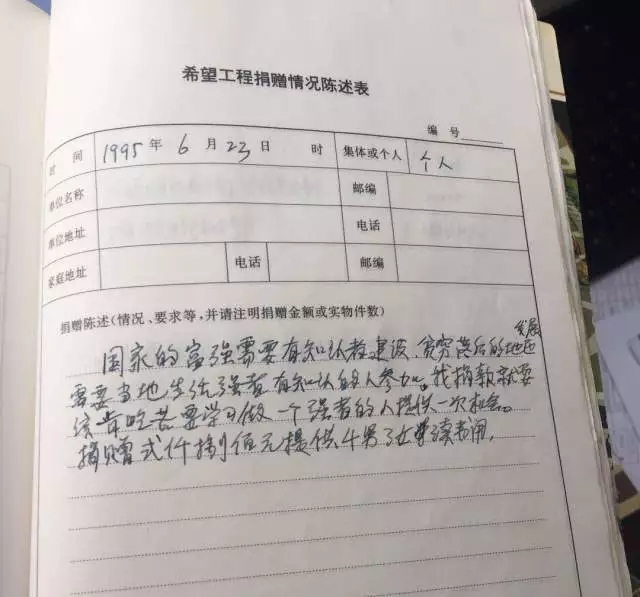 希望工程捐赠情况陈述表
编 号
时 间 1995 年 6 月 23 日 时 集体或个人 个人
单位名称 邮编
单位地址 电话
家庭地址 电话 邮编
捐赠陈述(情况、要求等,并请注明捐赠金额或实物件数)
国家的富强需要有知识者建设,贫穷落后的地区发展
需要当地生活强者有知识的人参加。我捐款就要
给肯吃苦要学习做一个强者的人提供一次机会。
捐赠弍仟捌佰元提供4男3女读书用,